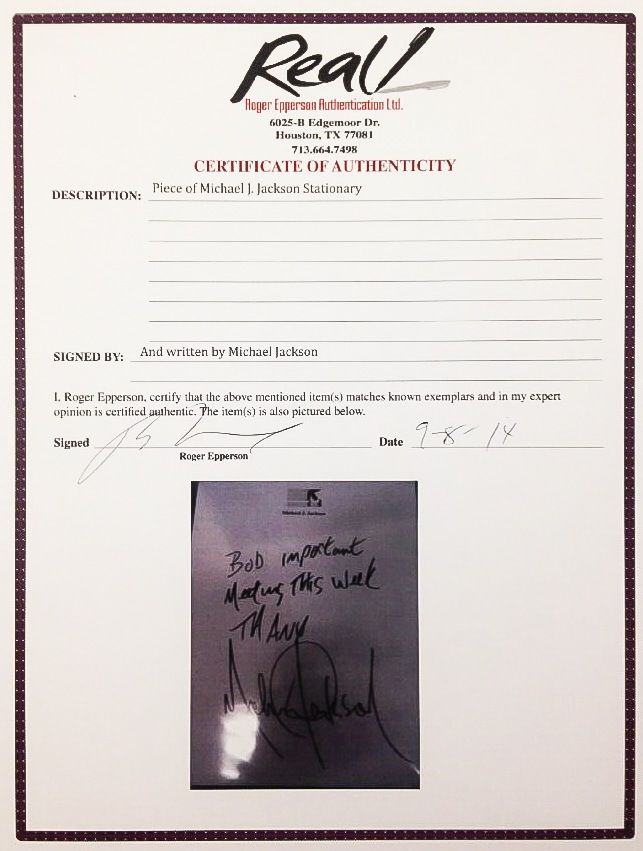 Real!
Roger Epperson Authentication Ltd.
6025-B Edgemoor Dr.
Houston, TX 77081
713.664.7498
CERTIFICATE OF AUTHENTICITY
DESCRIPTION: Piece of Michael J. Jackson Stationary
SIGNED BY: And written by Michael Jackson
I. Roger Epperson, certify that the above mentioned item(s) matches known exemplars and in my expert
opinion is certified authentic. The item(s) is also pictured below.
Signed Date 9-8-14
Roger Epperson
Michael J. Jackson
BOD important
Meeting This Week
Michael Jackson